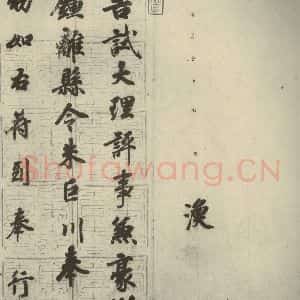 渙
告試大理評事兼豪
鍾離縣令朱巨川奉
如右苻到奉行
Shufawang.CN